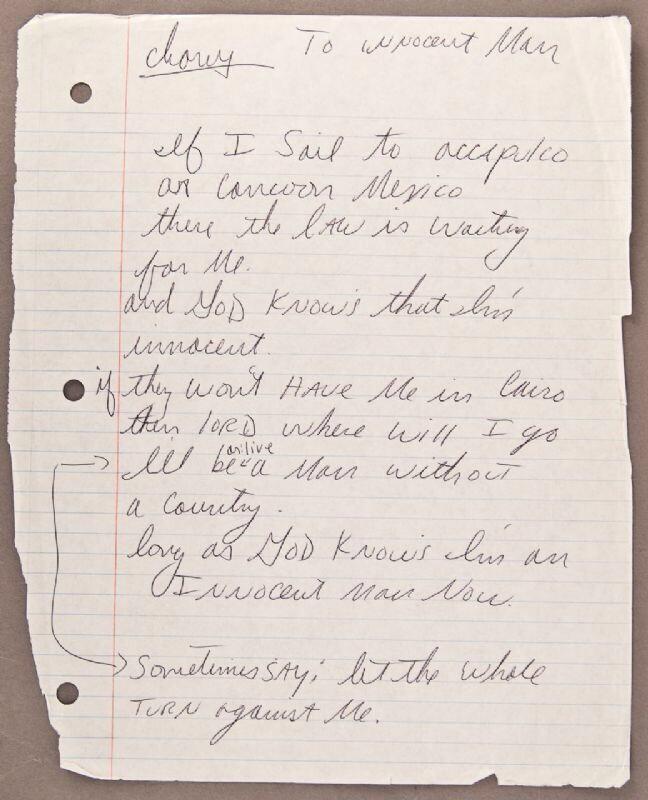 chorus To innocent Man
If I Sail to accapulco
or Cancoon Mexico
there the LAW is waiting
for Me.
and GOD KNOWS that Im
innocent.
if they won't HAVE Me in Cairo
then lORD where will I go
I'll be a Man without
or live
a Country.
long as GOD KNOWS Im an
INNOCENT Man Now.
Sometimes SAY; let the whole
TURN against Me.